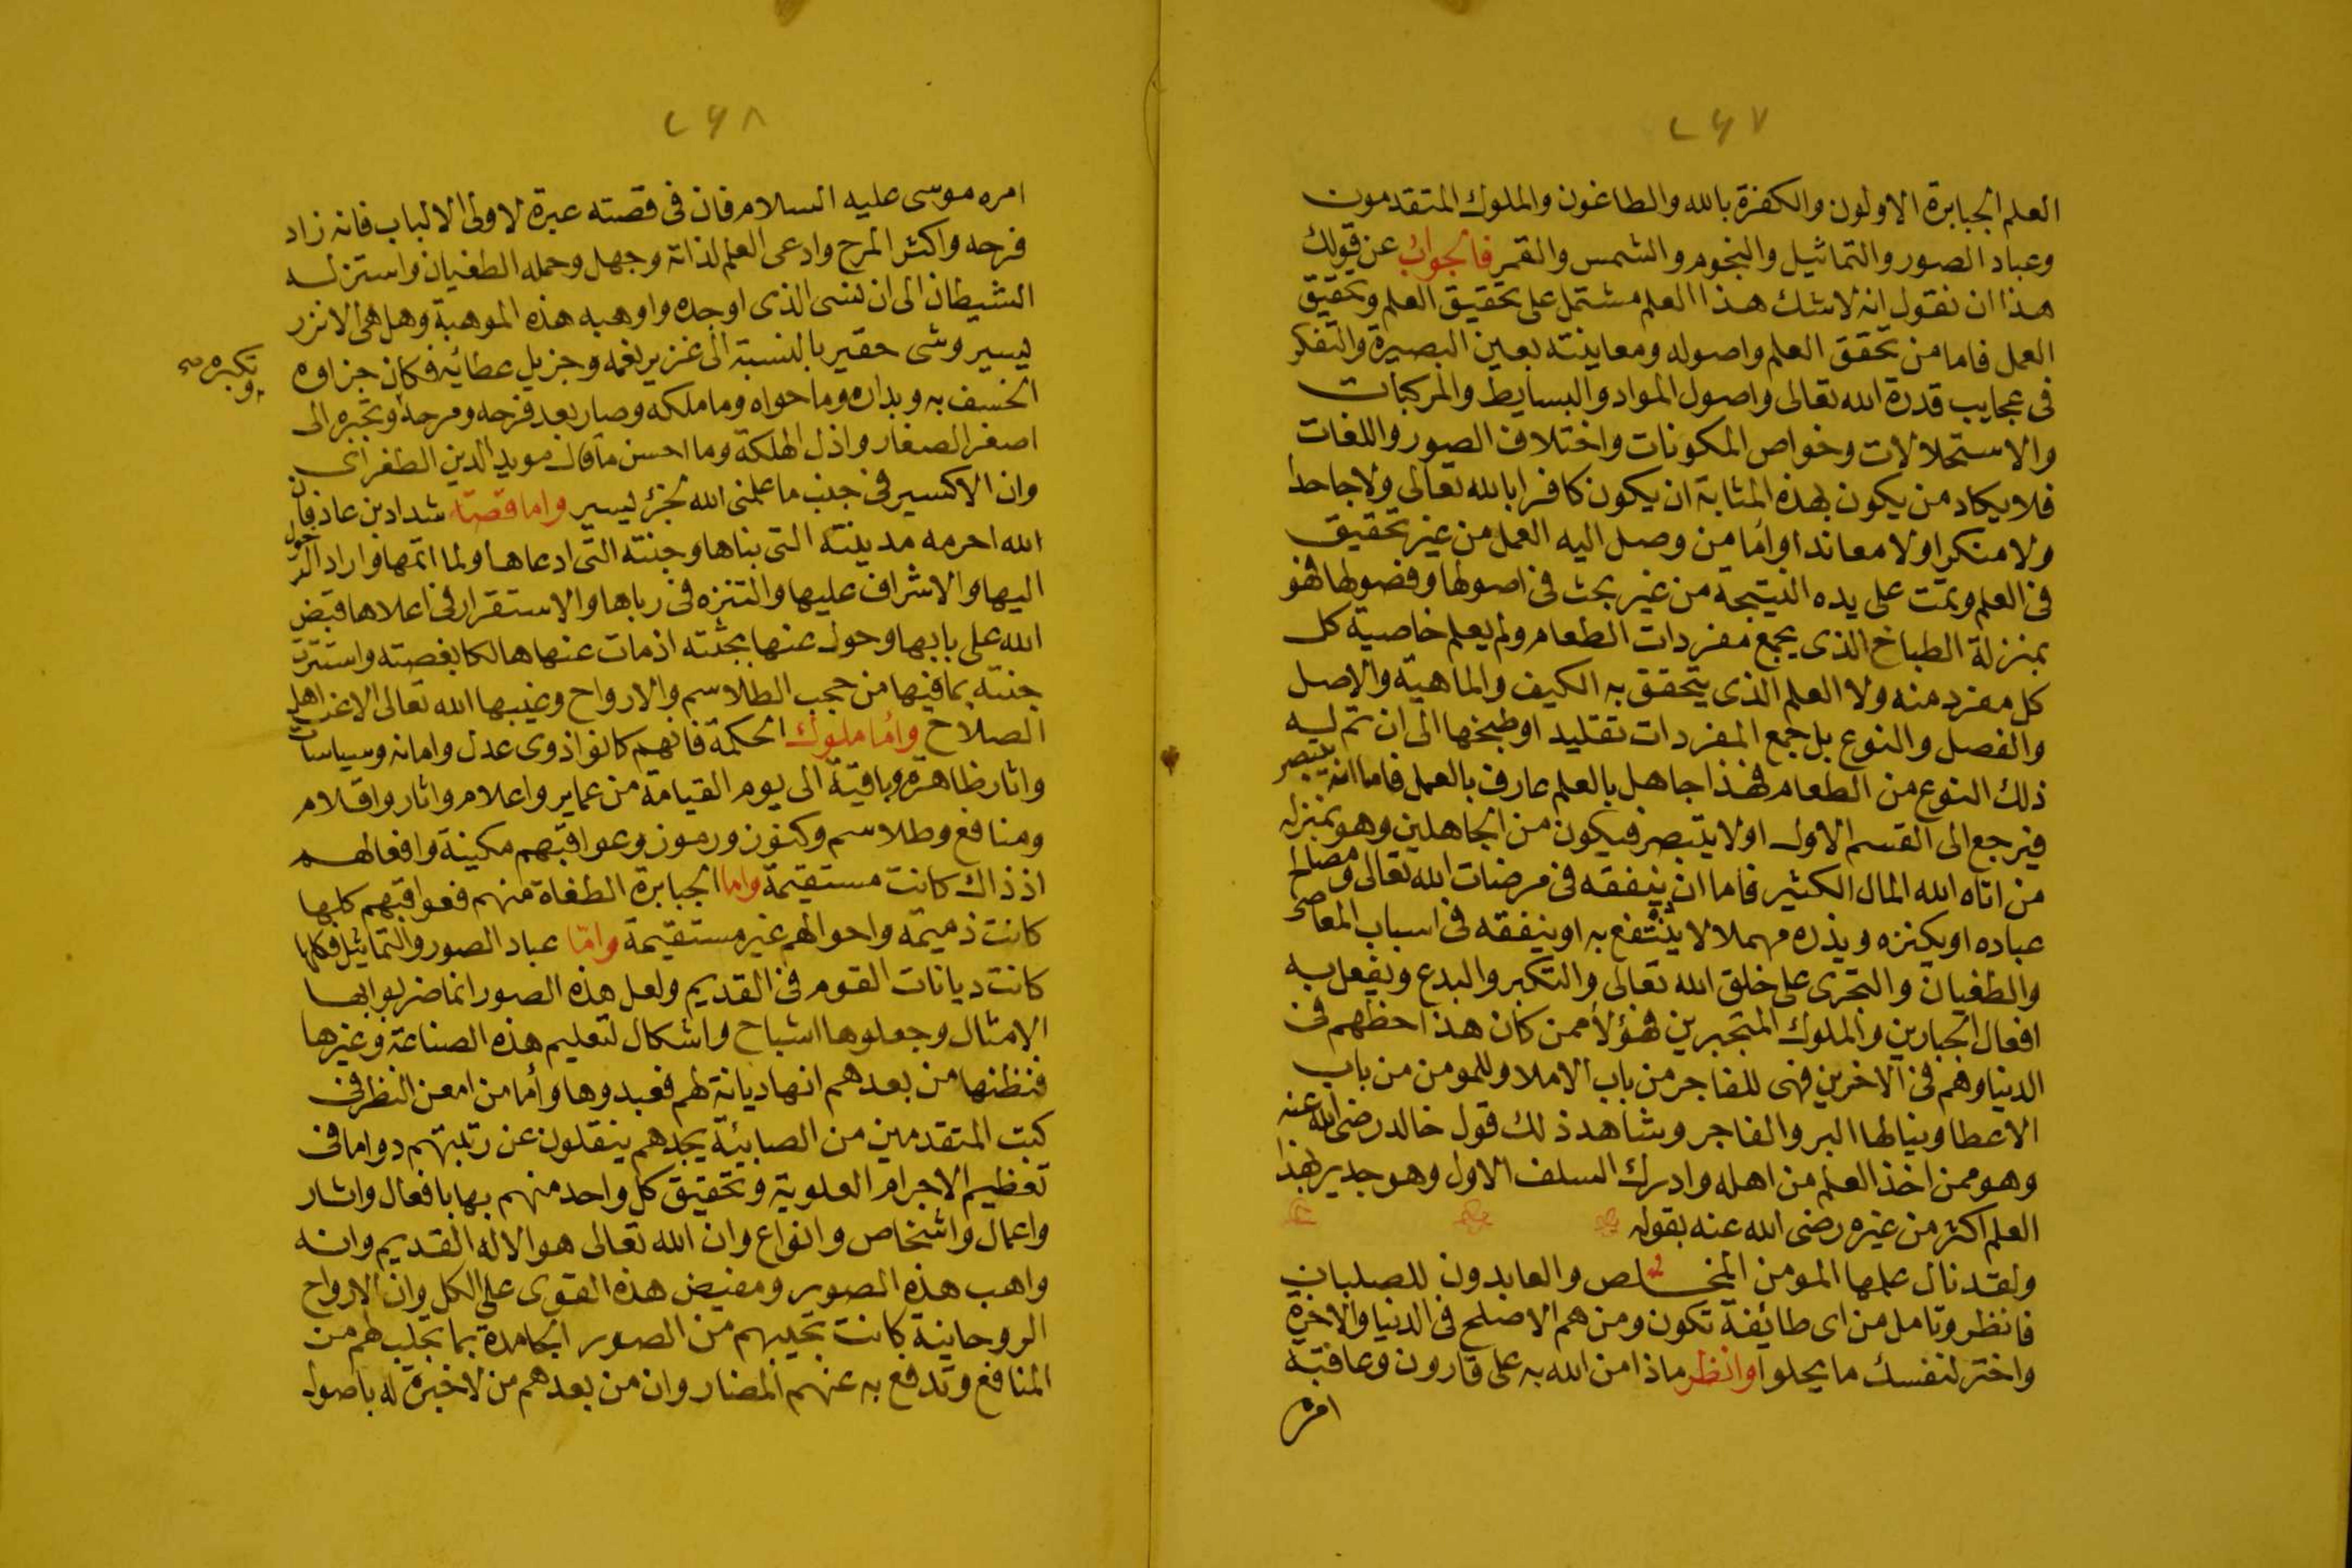 ٢٤٧
العلم الجبابرة الاولون والكفرة بالله والطاغون والملوك المتقدمون
وعباد الصور والتماثيل والنجوم والشمس والقمر فالجواب عن قولك
هذا ان نقول انه لاشك هذا العلم مشتمل على تحقيق العلم وتحقيق
العمل فاما من تحقق العلم واصوله ومعاينته بعين البصيرة والتفكر
فى عجايب قدرة الله تعالى واصول المواد والبسايط والمركبات
والاستحلالات وخواص المكونات واختلاف الصور واللغات
فلا يكاد من يكون بهذه المثابة ان يكون كافرا بالله تعالى ولا جاحدا
ولا منكرا ولا معاندا واما من وصل اليه العمل من غير تحقيق
فى العلم وتمت على يده النتيجة من غير بحث فى اصولها وفصولها فهو
بمنزلة الطباخ الذى يجمع مفردات الطعام ولم يعلم خاصية كل
كل مفرد منه ولا العلم الذى يتحقق به الكيف والماهية والاصل
والفصل والنوع بل جمع المفردات تقليد او طبخها الى ان تم له
ذلك النوع من الطعام فهذا جاهل بالعلم عارف بالعمل فاما انه يتبصر
فيرجع الى القسم الاول او لا يتبصر فيكون من الجاهلين وهو بمنزله
من اتاه الله المال الكثير فاما ان ينفقه فى مرضات الله تعالى ومصالح
عباده او يكنزه ويذره مهملا لا ينتفع به او ينفقه فى اسباب المعاصى
والطغيان والتجرى على خلق الله تعالى والتكبر والبدع ويفعل به
افعال الجبارين والملوك المتجبرين فهؤلأ ممن كان هذا حظهم فى
الدنيا وهم فى الاخرين فهى للفاجر من باب الاملا وللمومن من باب
الاعطا وينالها البر والفاجر وشاهد ذلك قول خالد رضى الله عنه
وهو ممن اخذ العلم من اهله وادرك السلف الاول وهو جدير بهذا
العلم اكثر من غيره رضى الله عنه بقوله
ولقد نال علمها المومن المخلص والعابدون للصلبان
فانظر وتامل من اى طائفة تكون ومن هم الاصلح فى الدنيا والاخرة
واختر لنفسك ما يحلوا وانظر ماذا من الله به على قارون وعاقبة
امره
٢٤٨
امره موسى عليه السلام فان فى قصته عبرة لاولى الالباب فانه زاد
فرحه واكثر المرح وادعى العلم لذاته وجهل وحمله الطغيان واستزله
الشيطان الى ان نسى الذى اوجده واوهبه هذه الموهبة وهل هى الا نزر
يسير وشى حقير بالنسبة الى غزير نعمه وجزيل عطائيه فكان جزاوه
الخسف به وبداره وما حواه وما ملكه وصار بعد فرحه ومرحه وتجبره الى
وتكبره صح
اصغر الصغار واذل الهلكة وما احسن ما قال مويد الدين الطغراى
وان الاكسير فى جنب ما علمنى الله لجزؤ يسير واما قصة شداد بن عاد فان
الله احرمه مدينته التى بناها وجنته التى ادعاها ولما اتمها واراد الدخول
اليها والاشراف عليها والتنزه فى رباها والاستقرار فى اعلاها قبض
الله على بابها وحول عنها بجثته اذ مات عنها هالكا بغصته واستترت
جنته بما فيها من حجب الطلاسم والارواح وغيبها الله تعالى الا عن اهل
الصلاح وأما ملوك الحكمة فانهم كانوا ذوى عدل وامانه وسياسات
واثار ظاهرة وباقية الى يوم القيامة من عماير واعلام واثار واقلام
ومنافع وطلاسم وكنوز ورموز وعواقبهم مكينة وافعالهم
اذ ذاك كانت مستقيمة واما الجبابرة الطغاة منهم فعواقبهم كلها
كانت ذميمة واحوالهم غير مستقيمة وامّا عباد الصور والتماثيل فكلها
كانت ديانات القوم فى القديم ولعل هذه الصور انما ضربوا بها
الامثال وجعلوها اشباح واشكال لتعليم هذه الصناعة وغيرها
فنظنها من بعدهم انها ديانة لهم فعبدوها وأما من امعن النظر فى
كتب المتقدمين من الصابئة يجدهم ينقلون عن رتبتهم دواما فى
تعظيم الاجرام العلوية وتحقيق كل واحد منهم بها بافعال واثار
واعمال واشخاص وانواع وان الله تعالى هو الاله القديم وانه
واهب هذه الصور ومفيض هذه القوى على الكل وان الارواح
الروحانية كانت تجيبهم من الصور الجامدة بما تجلب لهم من
المنافع وتدفع به عنهم المضار وان من بعدهم من لا خبرة له باصول